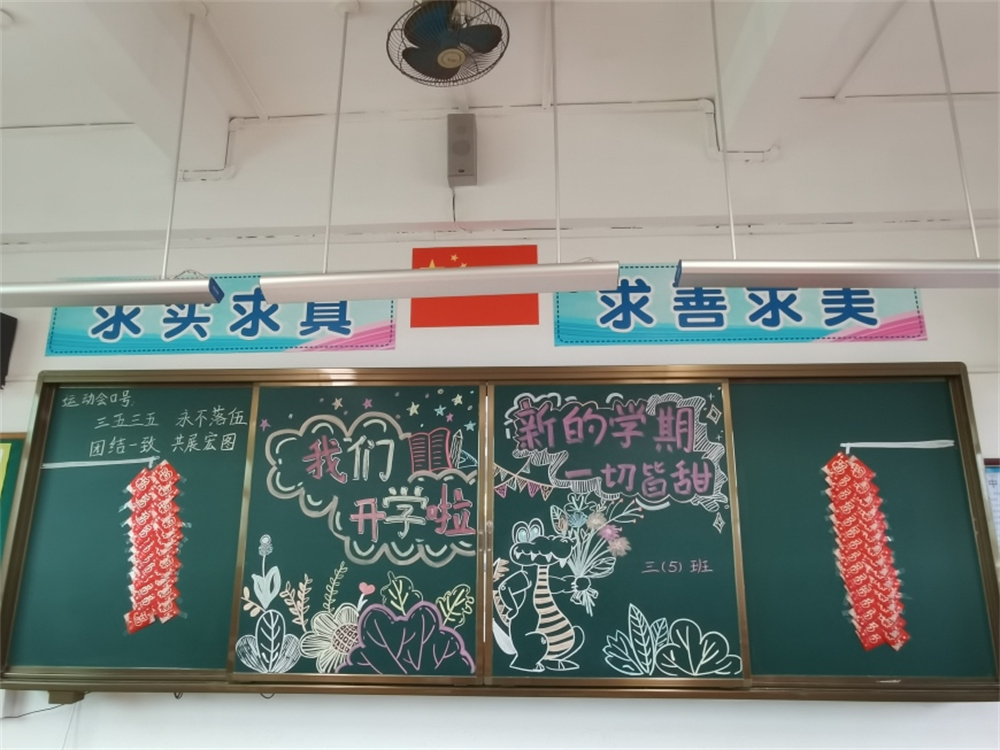 求实求真
求善求美
运动会口号
三五三五 永不落伍
团结一致 共展宏图
我们
开学啦
新的学期
一切皆甜
三(5)班